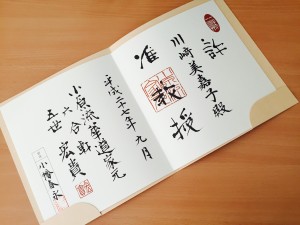 許
川崎美嘉子殿
准教授
平成二十七年九月
小原流華道家元
五世
六合軒
宏貴